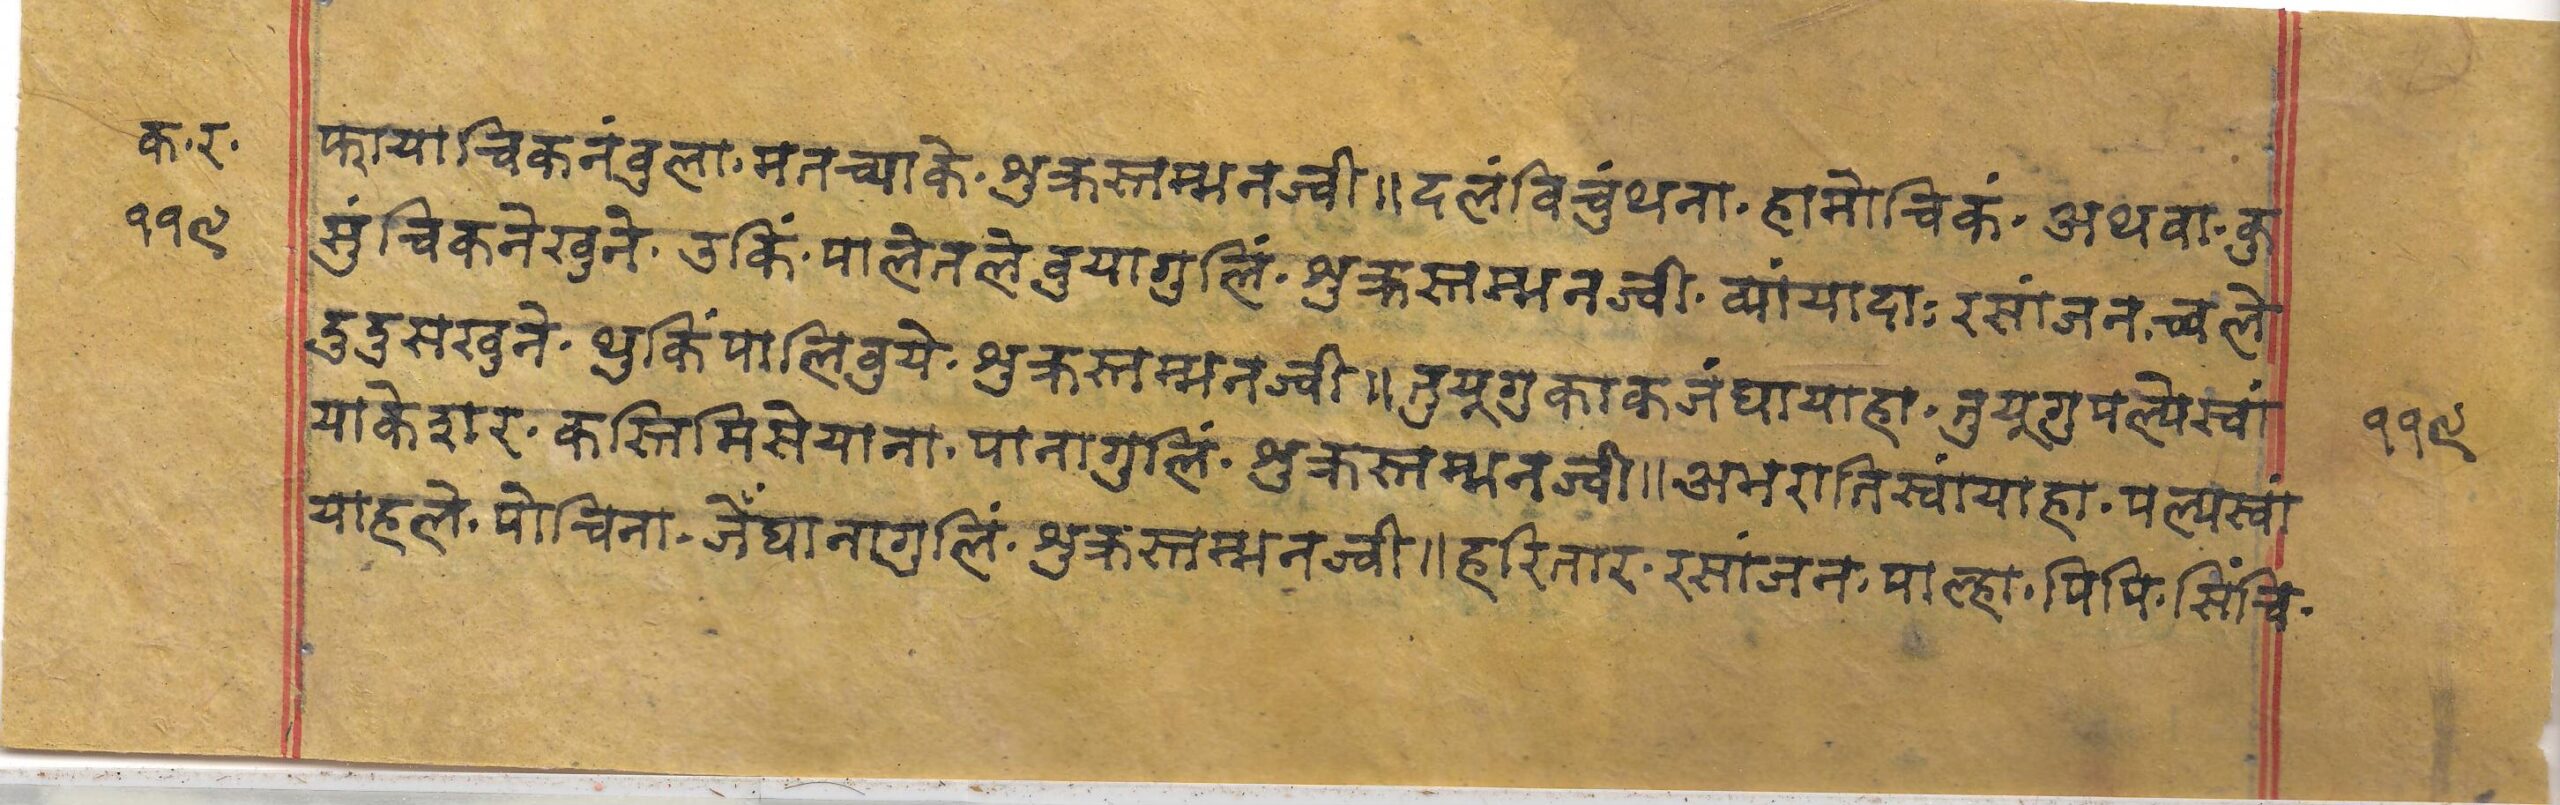 क.र. फायाचिकनंवुला. मतच्याके. शुक्रस्तम्भनज्वी॥ दलंविचुंथना. हामोचिकं. अथवा. कु
११९ मुंचिकनेखुने. उकिं. पालेतलेवुयागुलिं. शुक्रस्तम्भनज्वी. व्यांयादाः रसांजन. च्वले
दुदुसखुने. थुकिंपालिवुये. शुक्रस्तम्भनज्वी॥ तुयूगुकाकजंघायाहा. तुयूगुपल्येस्वां
याकेशर. कस्तिमिसेयाना. पानागुलिं. शुक्रस्तम्भनज्वी॥ अमरातिस्वांयाहा. पल्यस्वां ११९
याहले. पोचिना. जेँघानागुलिं. शुक्रस्तम्भनज्वी॥ हरितार. रसांजन. पाल्हा. पिपि. सिंचि.